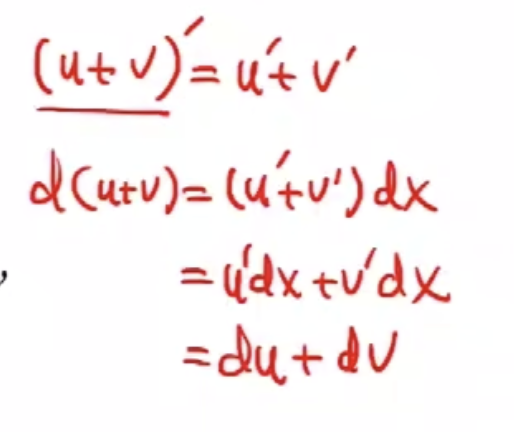 (u+v)′=u′+v′
d(u+v)=(u′+v′)dx
=u′dx+v′dx
=du+dv